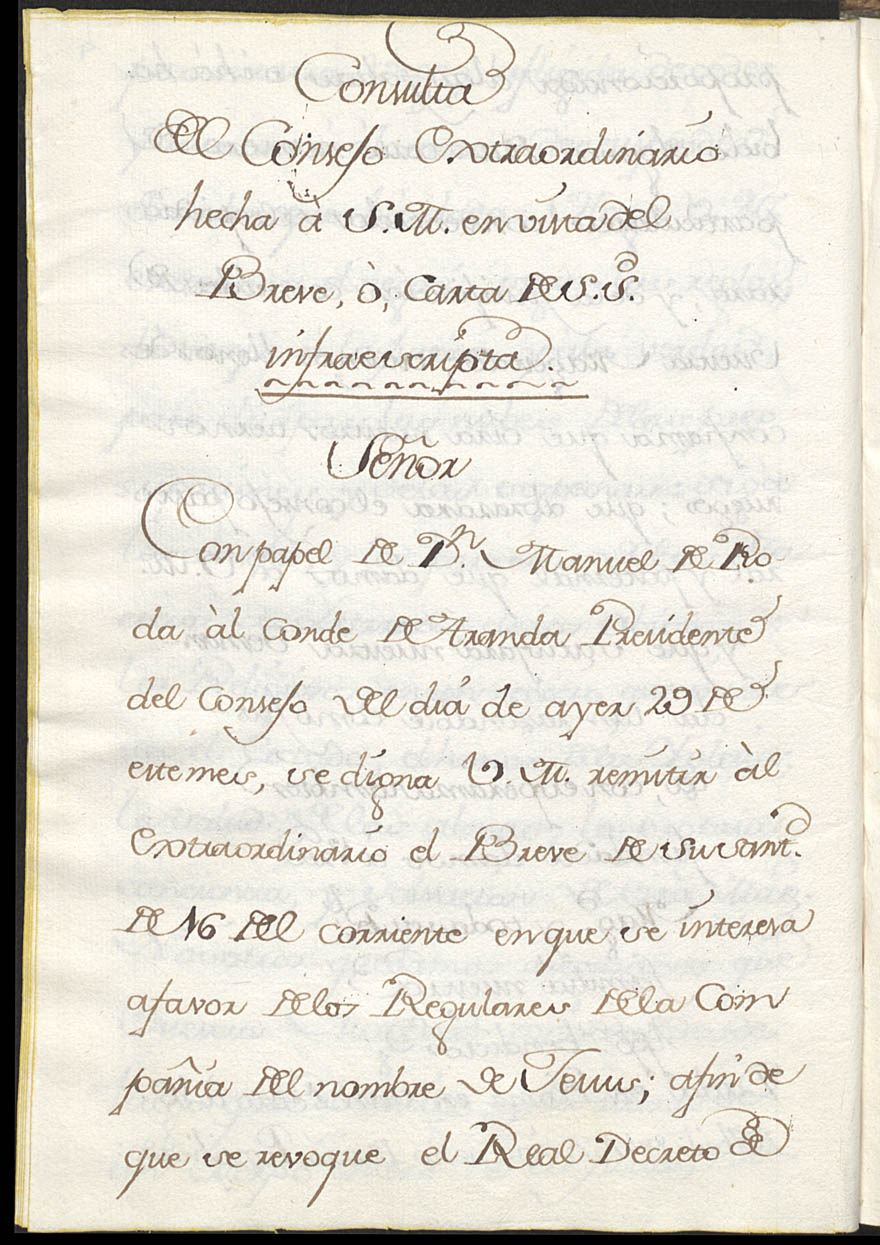 Consulta
Del Consejo Extraordinario
hecha à S. M. en vista del
Breve, ò, Carta de S. S.
infraescripta.
Señor
Con papel de Dn. Manuel de Ro
da àl Conde de Aranda Presidente
del Consejo del dia de ayer 29 de
este mes, se digna V. M. remitir àl
Extraordinario el Breve de su Santd.
de 16 del corriente en que se interesa
afavor delos Regulares dela Com
pañia del nombre de Jesus; afin de
que se revoque el Real Decreto de